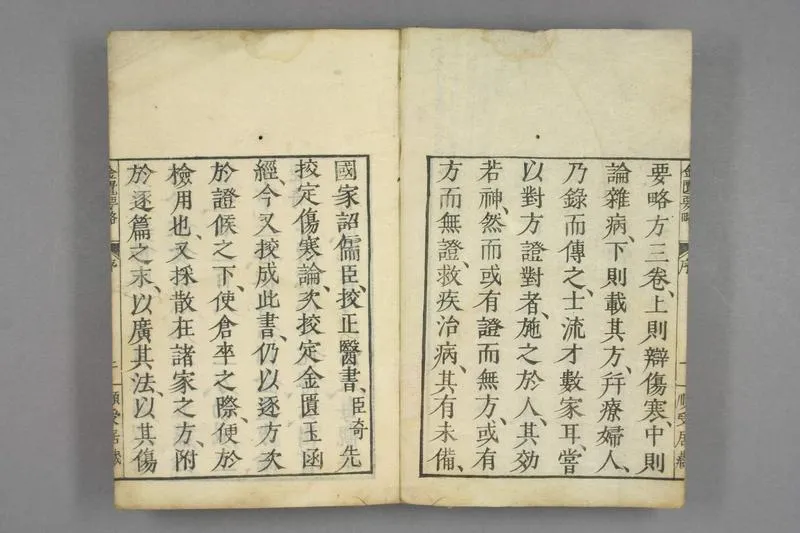 要略方三卷、上則辯傷寒、中則
論雜病、下則載其方、幷療婦人、
乃錄而傳之、士流才數家耳、嘗
以對方證對者、施之於人、其効
若神、然而或有證而無方、或有
方而無證、救疾治病、其有未備、
國家詔儒臣、挍正醫書、臣奇先
挍定傷寒論、次挍定金匱玉函
經、今又挍成此書、仍以逐方次
於證候之下、使倉卒之際、便於
檢用也、又採散在諸家之方、附
於逐篇之末、以廣其法、以其傷
金匱要略
序
二